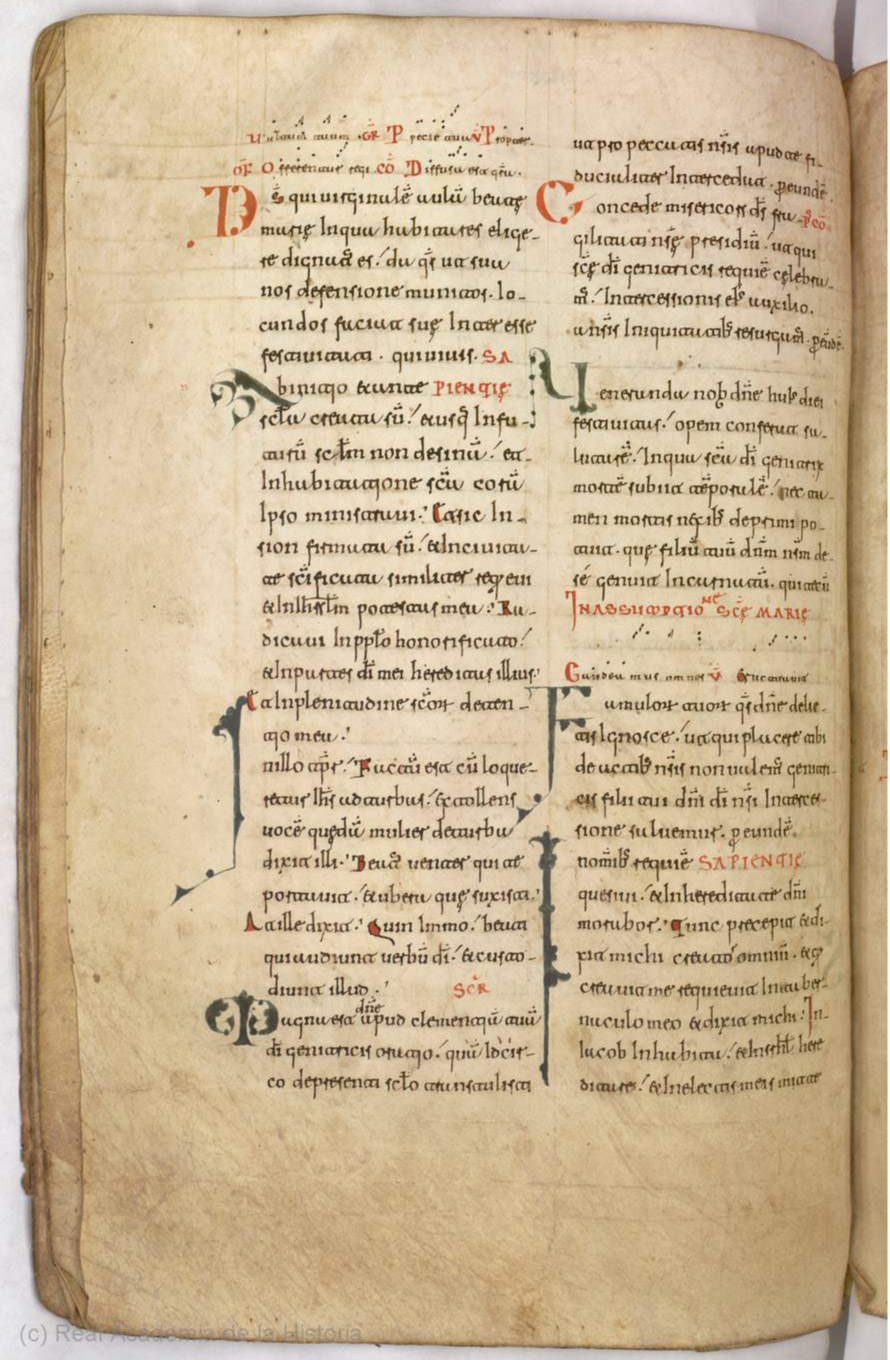 Vultum tuum. GR P Specie tua V Propter.
OF Offerentur regi. CO Diffusa est gra.
Ds qui uirginalē aulā beatę
marię In qua habitares elige-
re dignatꝰ es. da qs ut sua
nos defensione munitos. Io-
cundos faciat suę Interesse
festiuitati. qui uiuis. SA
Ab initio et ante PIENTIE
scla creata sū. et usq Infu-
turū sclm non desinā. et
In habitatione scā corā
Ipso ministraui. Et sic In
sion firmata sū. et Inciuita-
te scificata similiter requieui
et In ihrslm potestas mea. Ra-
dicaui In pplo honorificato.
et In partes di mei hereditas illius.
Et In plenitudine scōr deten-
tio mea.
In illo tpr. Factū est cū loque-
retur Ihs ad turbas. Extollens
uocē quędā mulier de turba
dixit illi. Beatꝰ uenter qui te
portauit. et ubera quę suxisti.
At ille dixit. Quin Immo. beati
qui audiunt uerbū di. et custo-
diunt illud. SCR
Magna est dne apud clementiā tuā
di genitricis oratio. quā Idcir-
co depresenti sclo transtulisti
ut pro peccatis nris apud te fi-
ducialiter Intercedat. p eundē.
Concede misericors ds fra- P CO
gilitati nrę presidiū. ut qui
scę di genitricis requiē celebra-
mꝰ. Intercessionis eiꝰ auxilio.
a nris Iniquitatibꝰ resurgamꝰ. p eundē.
Ueneranda nob dne huiꝰ diei
festiuitas. opem conferat sa-
lutarē. In qua scā di genitrix
mortē subiit tēporalē. nec ta-
men mortis nexibꝰ deprimi po-
tuit. que filiū tuū dnm nrm de
sē genuit Incarnatū. qui tecū
IN ASSUMPTIONE SCE MARIE
Gaudeamus omnes V Eructauit
Famulorū tuorū qs dne delic-
tis Ignosce. ut qui placere tibi
de actibꝰ nris non ualemꝰ geni-
cis filii tui dni di nri Interces-
sione saluemur. p eundē.
In omibꝰ requiē SAPIENTIE
quesiui. et In hereditate dni
morabor. Tunc precepit et di-
xit michi creator omniū. et q
creauit me requieuit In taber-
naculo meo et dixit michi. In
Iacob Inhabita. et In isrhl here
ditare. et In electis meis mitte